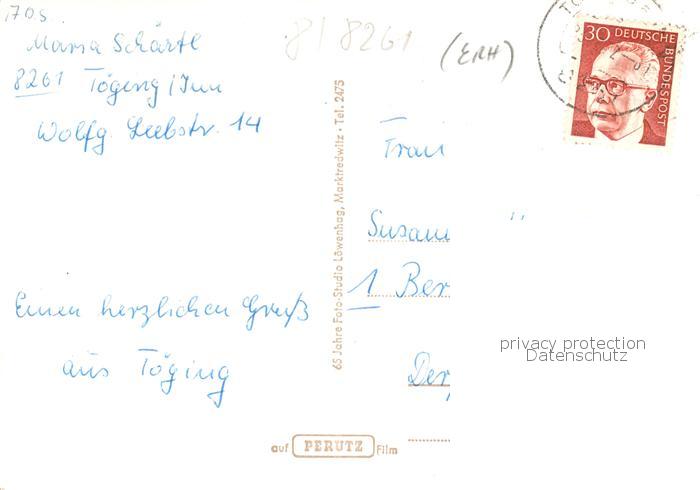 1705
Maria Schärtl
8261 Töging / Inn
Wolfg. Leebstr. 14
81 8261
(ERH)
30 DEUTSCHE BUNDESPOST
65 Jahre Foto-Studio Löwenhag, Marktredwitz · Tel. 2475
Frau
Susan
1 Ber
Der
Einen herzlichen Gruß
aus Töging
privacy protection
Datenschutz
auf PERUTZ Film